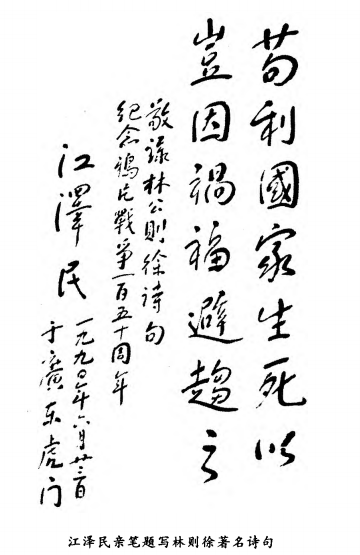 苟利國家生死以
豈因禍福避趨之
敬录林公则徐诗句
纪念鸦片戰爭一百五十周年
江澤民
一九九〇年六月廿三日
于廣东虎门
江泽民亲笔题写林则徐著名诗句